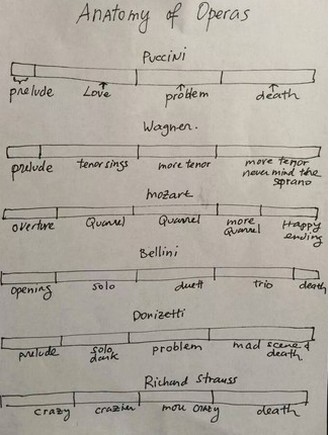 Anatomy of Operas
Puccini
prelude Love problem death
Wagner.
prelude tenor sings more tenor more tenor
never mind the
soprano
mozart
overture Quarrel Quarrel more Happy
Quarrel ending
Bellini
opening solo duett trio death
Donizetti
prelude solo problem mad scene &
dark death
Richard Strauss
crazy crazier more crazy death